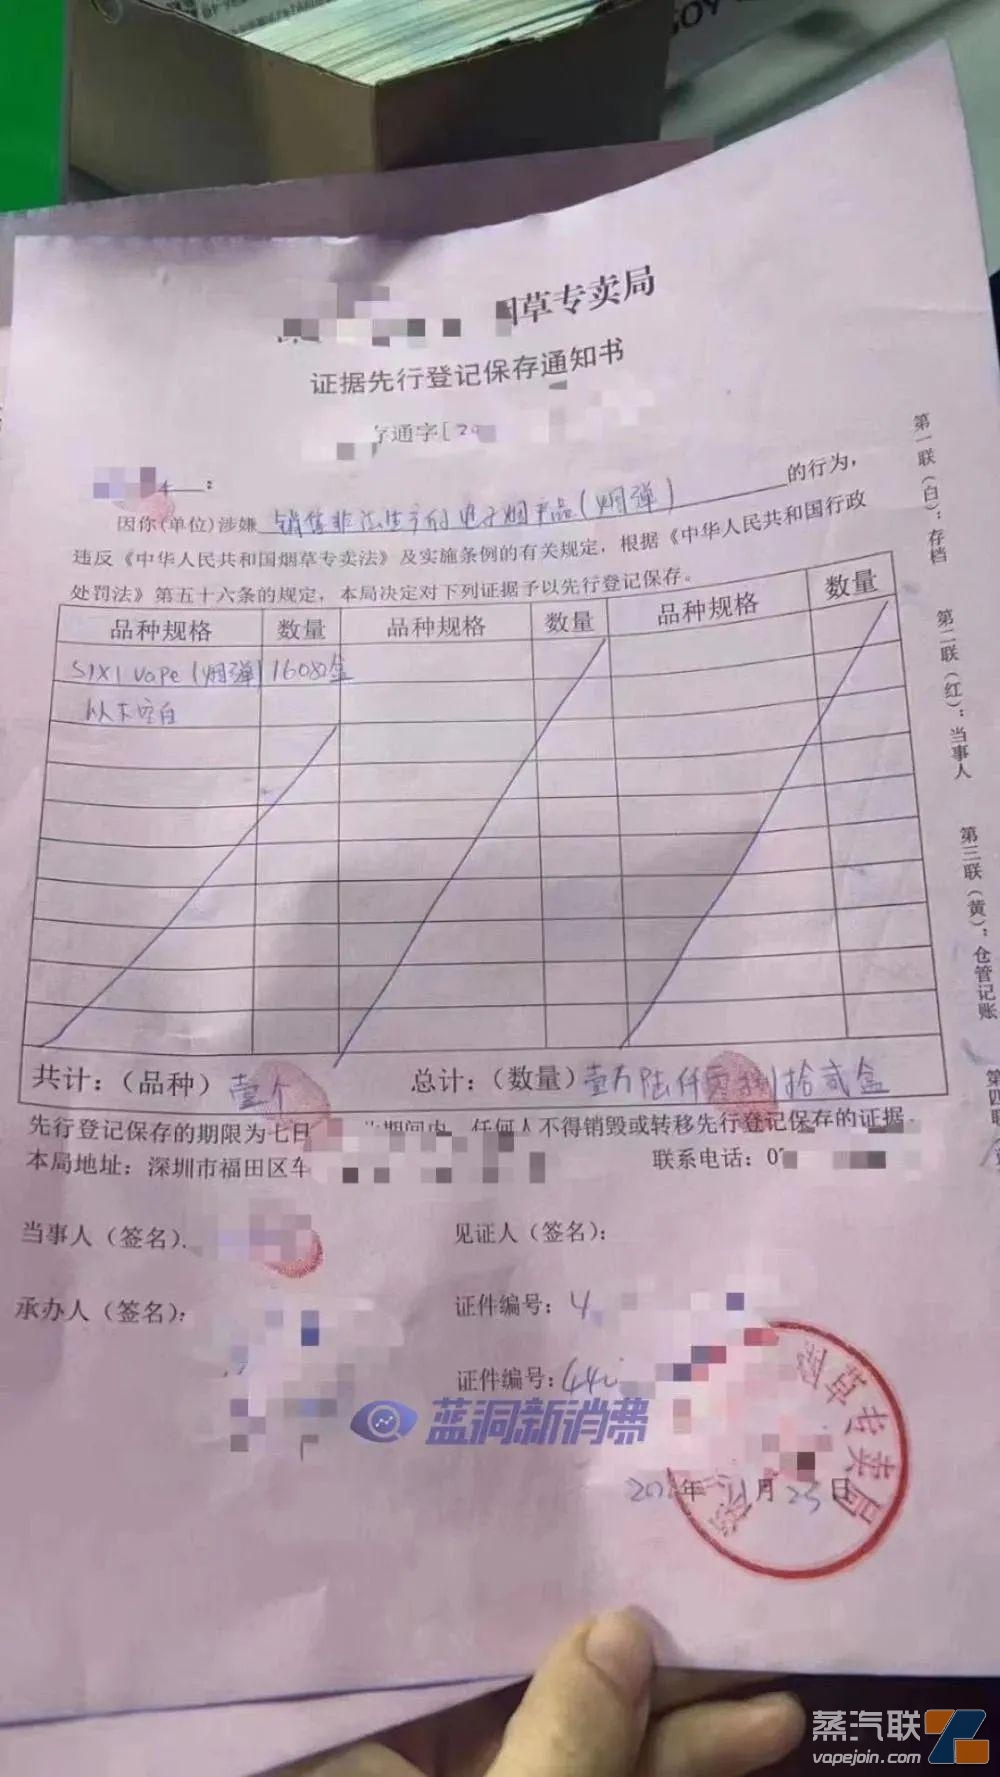 草专卖局
证据先行登记保存通知书
存通字[20
:
因你(单位)涉嫌 销售非法生产的电子烟产品(烟弹) 的行为，
违反《中华人民共和国烟草专卖法》及实施条例的有关规定，根据《中华人民共和国行政
处罚法》第五十六条的规定，本局决定对下列证据予以先行登记保存。
品种规格 数量 品种规格 数量 品种规格 数量
SIXI vape (烟弹) 16082盒
以下空白
共计：（品种）壹个 总计：（数量）壹万陆仟零捌拾贰盒
先行登记保存的期限为七日 此期间内，任何人不得销毁或转移先行登记保存的证据
本局地址：深圳市福田区车 联系电话：0
当事人（签名）： 见证人（签名）：
承办人（签名）： 证件编号：4
证件编号：44
年11月25日
草专卖局
第一联（白）：存档
第二联（红）：当事人
第三联（黄）：仓管记账
第四联
蓝洞新消费
蒸汽联
vapejoin.com